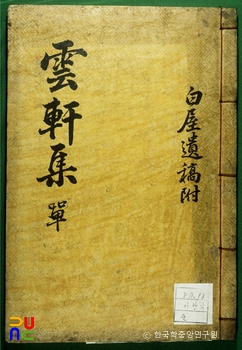 雲軒集 單
白屋遺稿附
한국학중앙연구원